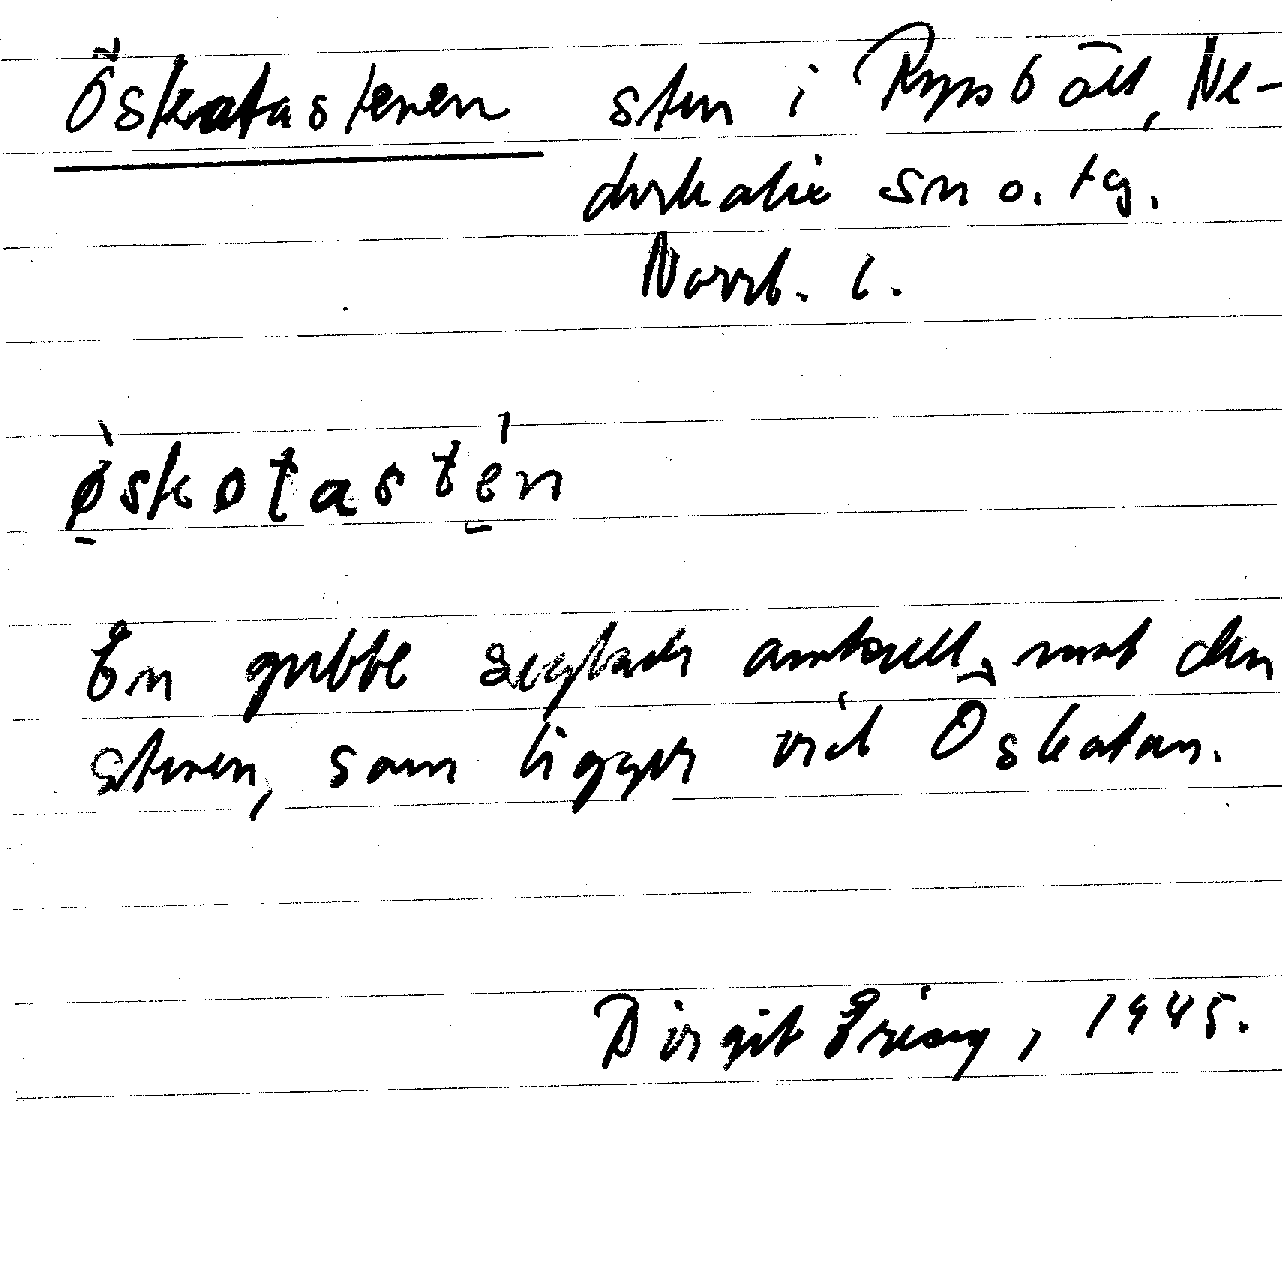 Öskatastenen sten i Rysbält, Ne-
derkalix sn o. tg.
Norrb. l.
ø̀skotastén
En gubbe seglade omkull mot den
stenen, som ligger vid Öskatan.
Birgit Ericxy, 1945.